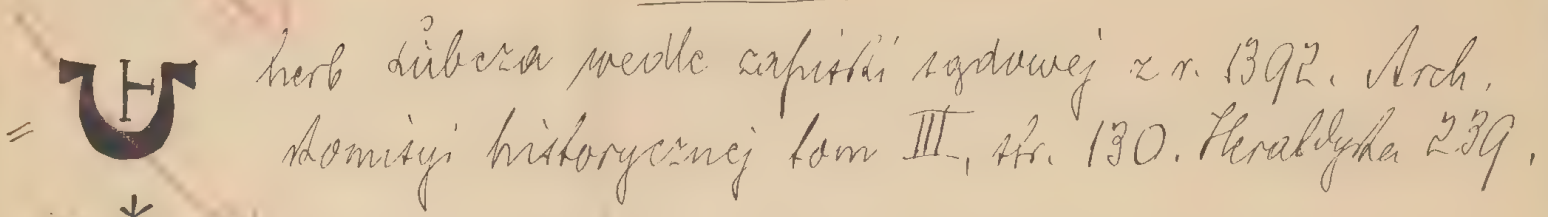 herb Lubcza wedle zapiski sądowej z r. 1392. Arch.
Komisyi historycznej tom III, str. 130. Heraldyka 239.